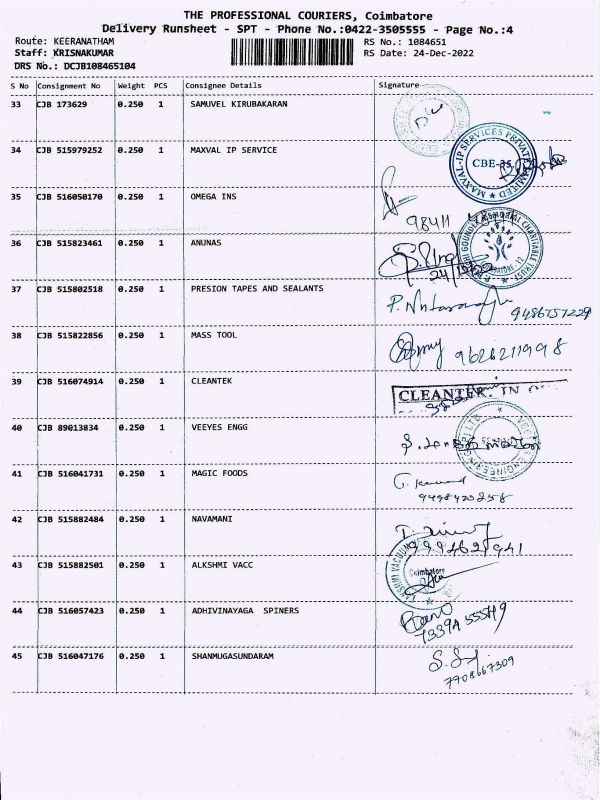 THE PROFESSIONAL COURIERS, Coimbatore
Delivery Runsheet - SPT - Phone No.:0422-3505555 - Page No.:4
Route: KEERANATHAM
RS No.: 1084651
Staff: KRISNAKUMAR
RS Date: 24-Dec-2022
DRS No.: DCJB108465104
S No Consignment No Weight PCS Consignee Details Signature
33 CJB 173629 0.250 1 SAMUVEL KIRUBAKARAN
34 CJB 515979252 0.250 1 MAXVAL IP SERVICE
MAXVAL-IP SERVICES PRIVATE LIMITED
CBE-35
35 CJB 516050170 0.250 1 OMEGA INS
36 CJB 515823461 0.250 1 ANUNAS
37 CJB 515802518 0.250 1 PRESION TAPES AND SEALANTS
9486757229
38 CJB 515822856 0.250 1 MASS TOOL
9626211998
39 CJB 516074914 0.250 1 CLEANTEK
40 CJB 89013834 0.250 1 VEEYES ENGG
41 CJB 516041731 0.250 1 MAGIC FOODS
42 CJB 515882484 0.250 1 NAVAMANI
43 CJB 515882501 0.250 1 ALKSHMI VACC
Coimbatore
44 CJB 516057423 0.250 1 ADHIVINAYAGA SPINERS
45 CJB 516047176 0.250 1 SHANMUGASUNDARAM
7708667309